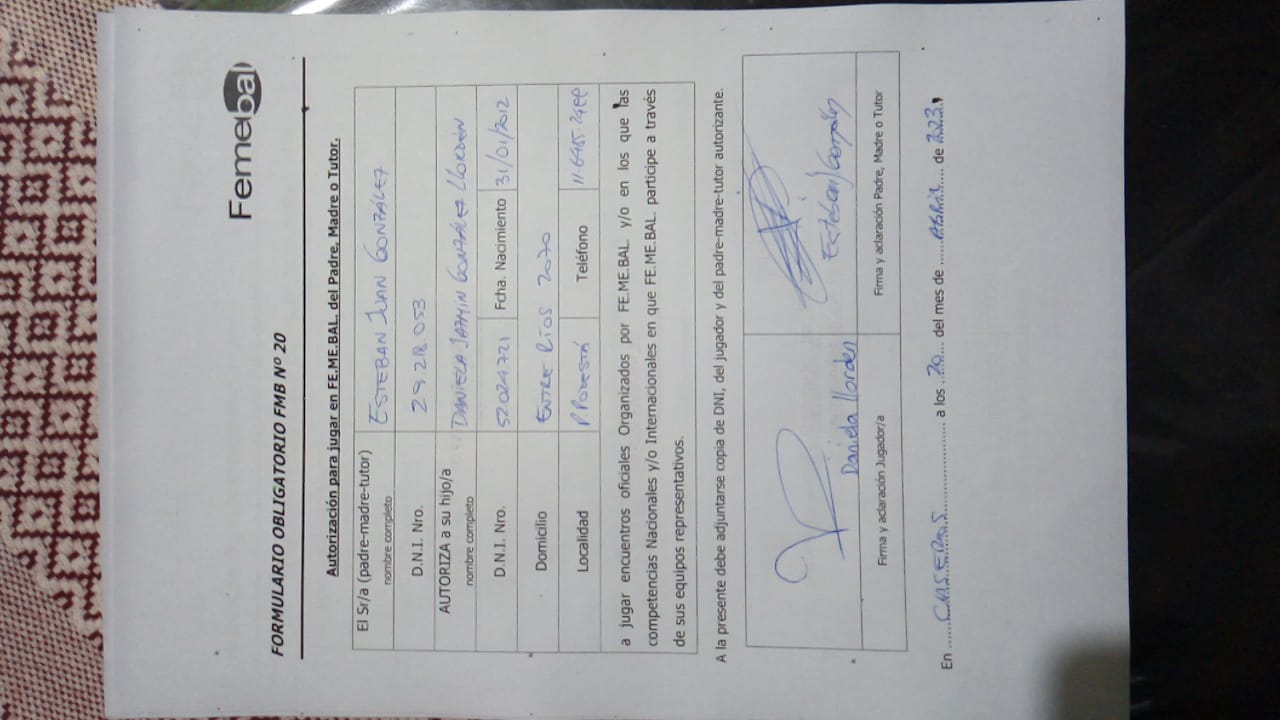 Femebal
FORMULARIO OBLIGATORIO FMB Nº 20
Autorización para jugar en FE.ME.BAL. del Padre, Madre o Tutor.
El Sr/a (padre-madre-tutor) ESTEBAN JUAN GONZALEZ
nombre completo
D.N.I. Nro. 29.28.053
AUTORIZA a su hijo/a DANIELA JAZMIN GONZALEZ LLORDEN
nombre completo
D.N.I. Nro. 52024721 Fcha. Nacimiento 31/01/2012
Domicilio ENTRE RIOS 2070
Localidad P. PODESTÁ Teléfono
a jugar encuentros oficiales Organizados por FE.ME.BAL. y/o en los que las
competencias Nacionales y/o Internacionales en que FE.ME.BAL. participe a través
de sus equipos representativos.
A la presente debe adjuntarse copia de DNI, del jugador y del padre-madre-tutor autorizante.
Daniela Llorden Esteban Gonzalez
Firma y aclaración Jugador/a Firma y aclaración Padre, Madre o Tutor
En ......CASEROS...... a los ..20... del mes de ......ABRIL..... de 2023.